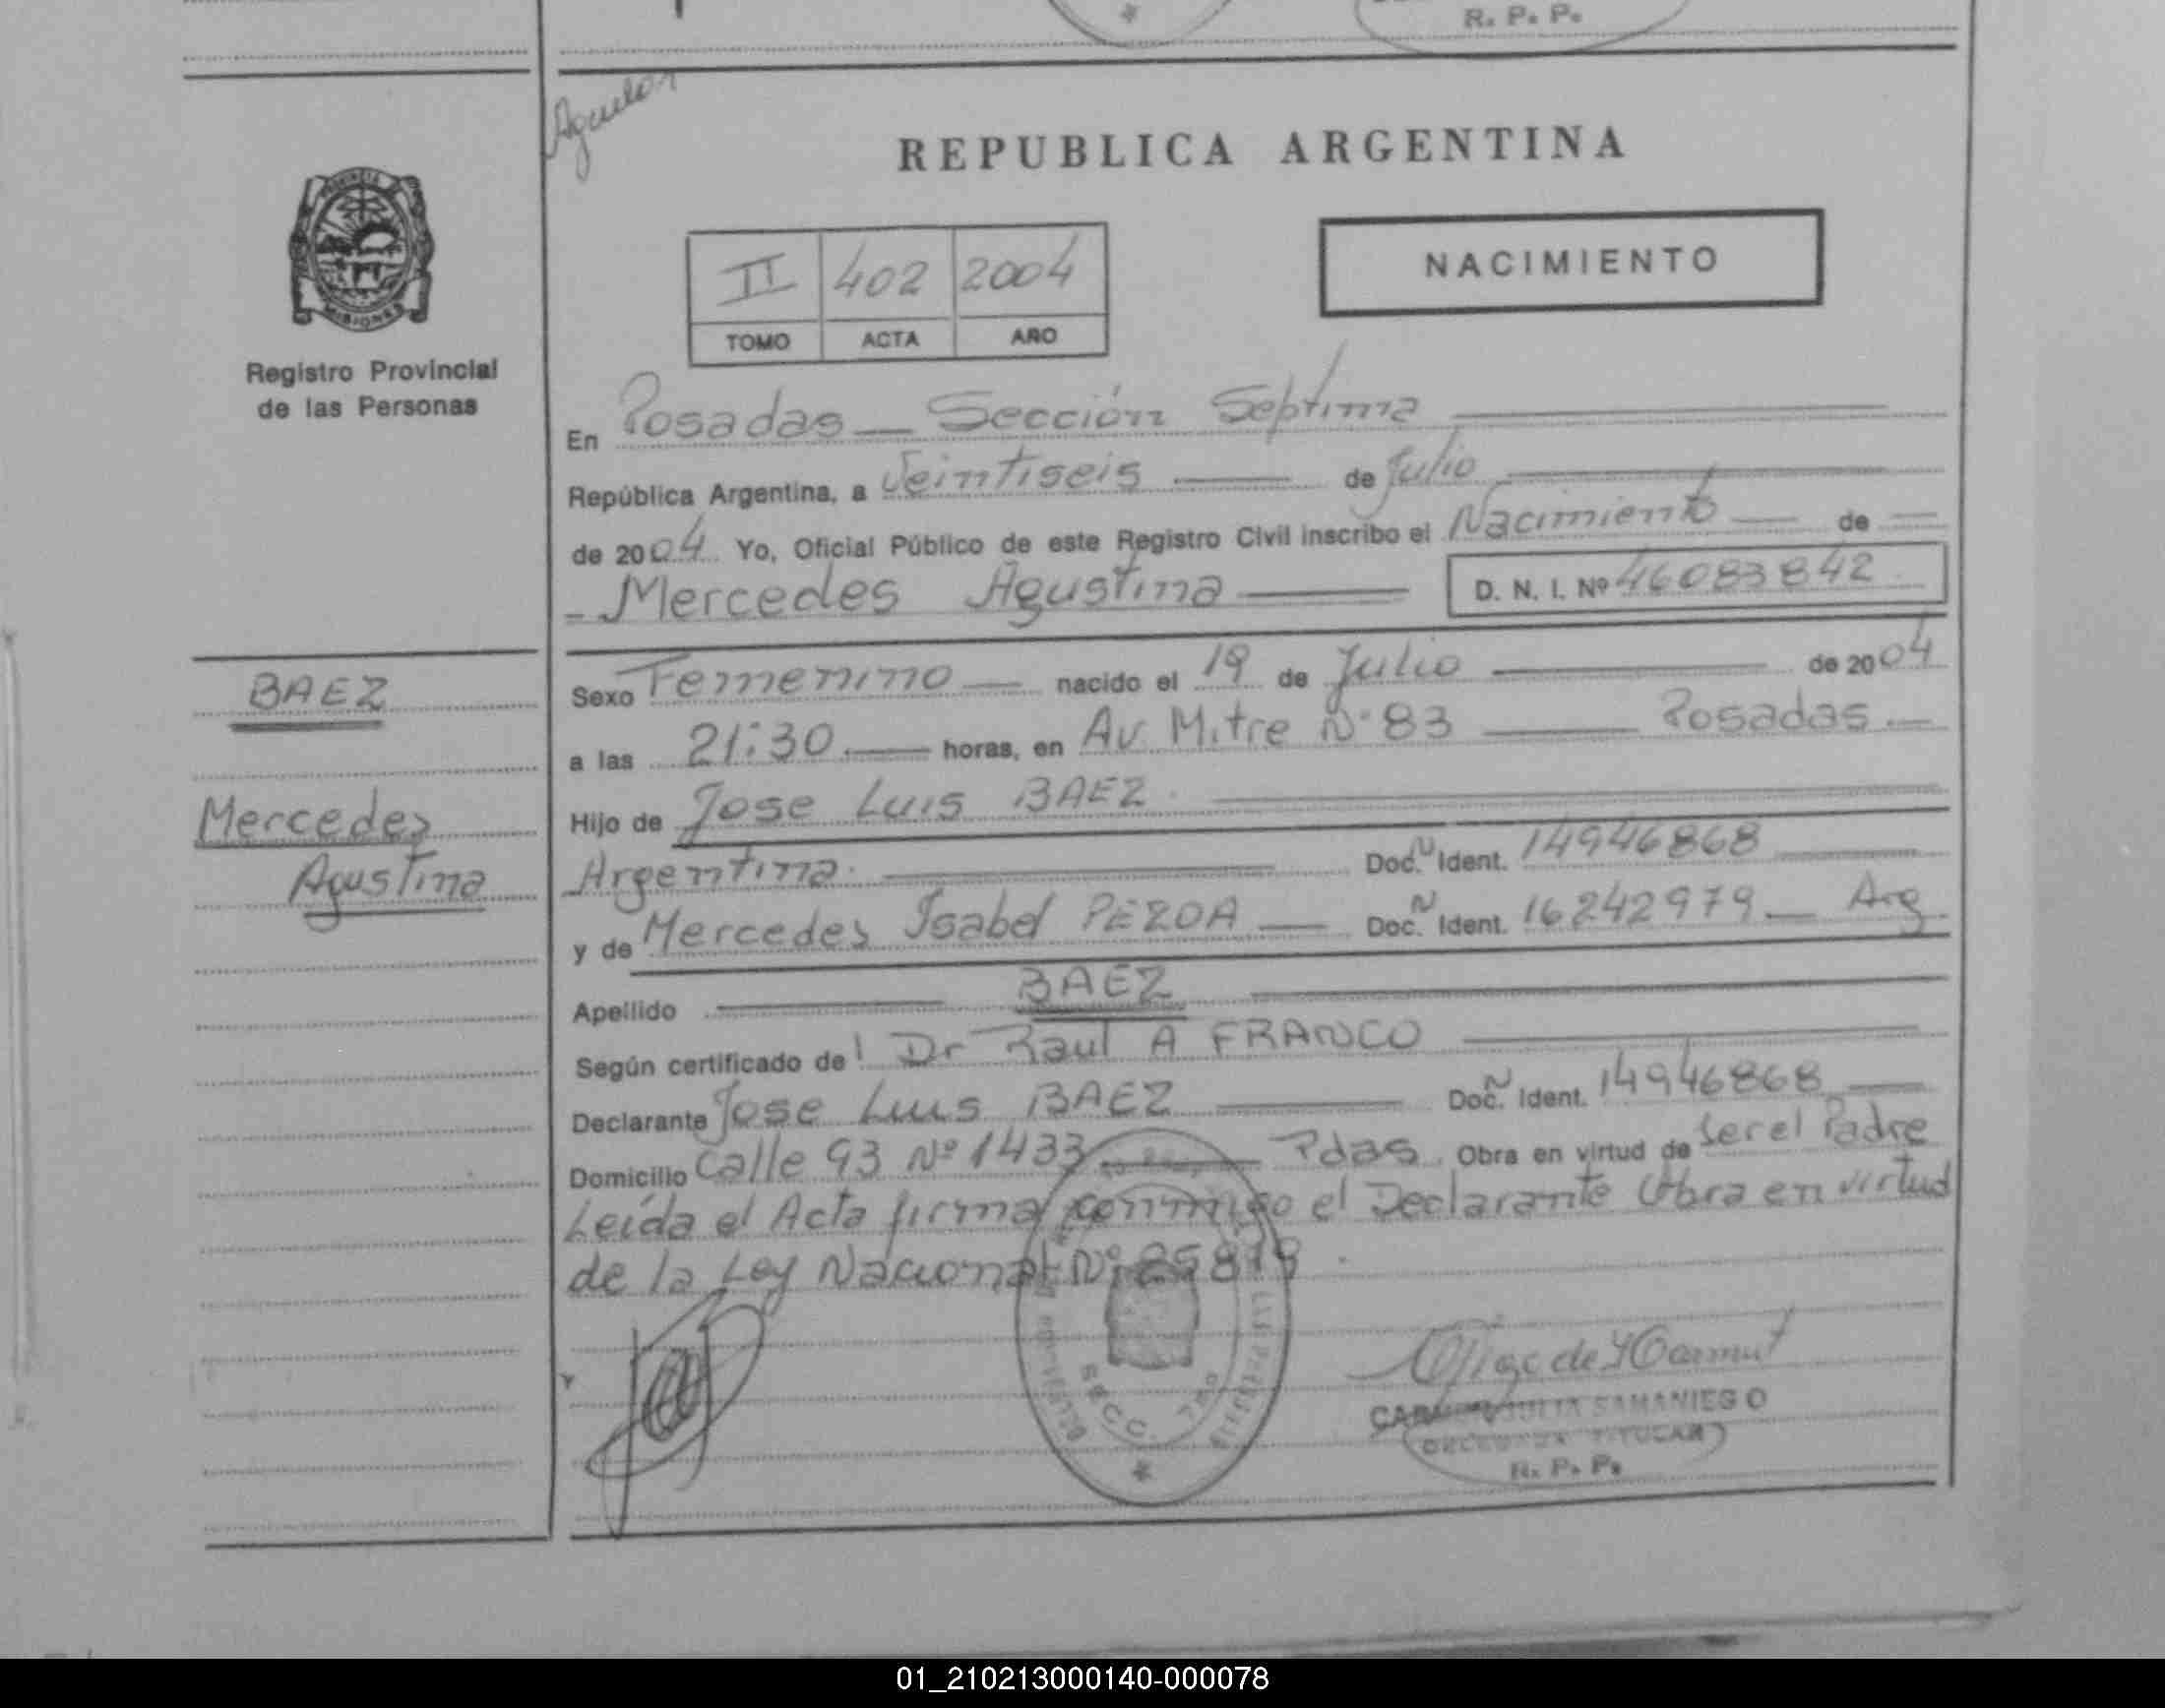 R. P. P.
REPUBLICA ARGENTINA
NACIMIENTO
II 402 2004
TOMO ACTA AÑO
PROVINCIA DE
MISIONES
Registro Provincial
de las Personas
En Posadas — Sección Septima
República Argentina, a Veintiseis de Julio
de 2004 Yo, Oficial Público de este Registro Civil inscribo el Nacimiento de
Mercedes Agustina D. N. I. Nº 46083842
BAEZ
Mercedes
Agustina
Sexo Femenino nacido el 19 de Julio de 2004
a las 21:30 horas, en Av. Mitre Nº 83 Posadas
Hijo de Jose Luis BAEZ
Argentina. Doc. N Ident. 14946868
y de Mercedes Isabel PEZOA Doc. N Ident. 16242979 Arg.
Apellido BAEZ
Según certificado de: Dr Raul A FRANCO
Declarante Jose Luis BAEZ Doc. N Ident. 14946868
Domicilio Calle 93 Nº 1433 Pdas. Obra en virtud de ser el Padre
Leída el Acta firma conmigo el Declarante Obra en virtud
de la Ley Nacional Nº 25819
SECC. 7ma
CARMEN JULIA SAMANIEGO
TITULAR
R. P. P.
01_210213000140-000078